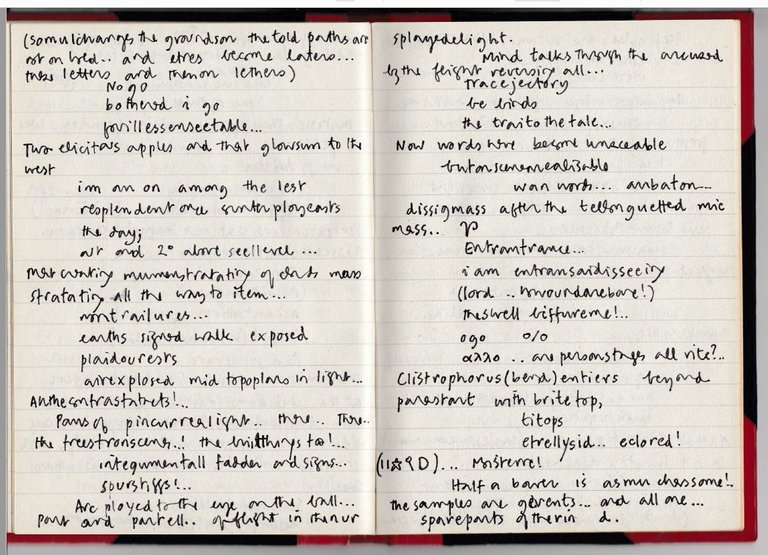 (somulchanges the groundson the told paths are
not on bred.. and etres become laters...
these letters and themon lethers)
No go
bothered i go
forillessenseetable...
Two elicitors apples and that glowsum to the
west
im an on among the lest
resplendent once sunterploycasts
the day;
art and 2° above seellevel ...
stratating all the way to item...
montrailures...
earths signed walk exposed
plaidourests
airexplosed mid topoplans in light...
Anthontrastabets!...
Pans of pincurrealight.. there.. There..
the treestronscener..! the builtthings too!...
integumentall fadder and signs...
sourstiffs!...
Arc ployed to the eye on the ball...
Part and partell.. offlight in thenur
splayedelight.
Mind talks through the arcused
by the feight reversix all...
tracejectory
be birds
the trait o the tale...
Now words here become unaceable
butonscenemealisable
wan words... anbaton...
dissigmass after the tellonguetted mic
mass..
Entrantrance...
i am entransaidisseeing
(lord ..
theswell biffureme!..
ogo o/o
αλλο .. are personstages all rite?..
Clistrophorus (bend) entiers beyond
parastant with britetop,
titops
etrellysid.. eclored!
(11☆9D)... Moisterre!
Half a baver is asmuchassome!..
the samples are gorents... and all one...
spareparts of therin d..